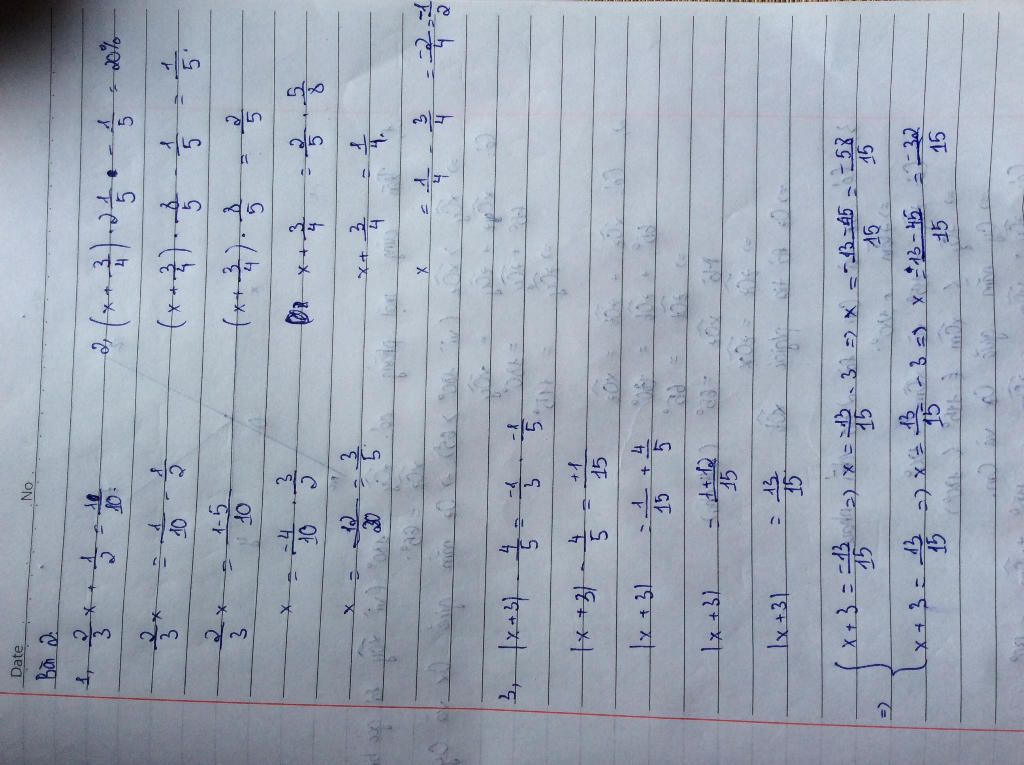 Date No.
Bài 2
1, 2/3 x + 1/2 = 1/10
2/3 x = 1/10 - 1/2
2/3 x = 1-5/10
x = -4/10 . 3/2
x = -12/20 = -3/5
2, (x + 3/4) . 2 1/5 - 1/5 = 20%
(x + 3/4) . 8/5 - 1/5 = 1/5
(x + 3/4) . 8/5 = 2/5
x + 3/4 = 2/5 . 5/8
x + 3/4 = 1/4
x = 1/4 - 3/4 = -2/4 = -1/2
3, |x + 3| - 4/5 = -1/3 . -1/5
|x + 3| - 4/5 = +1/15
|x + 3| = 1/15 + 4/5
|x + 3| = 1+12/15
|x + 3| = 13/15
=> { x + 3 = -13/15 => x = -13/15 - 3 => x = -13-45/15 = -58/15
x + 3 = 13/15 => x = 13/15 - 3 => x = 13-45/15 = -32/15